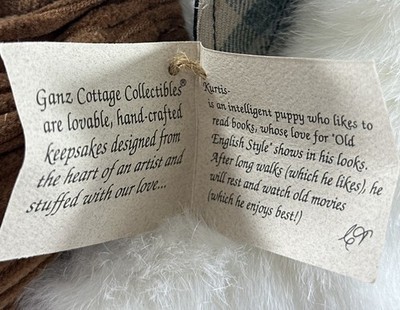 Ganz Cottage Collectibles®
are lovable, hand-crafted
keepsakes designed from
the heart of an artist and
stuffed with our love...
Kurtis-
is an intelligent puppy who likes to
read books, whose love for 'Old
English Style' shows in his looks.
After long walks (which he likes), he
will rest and watch old movies
(which he enjoys best!)